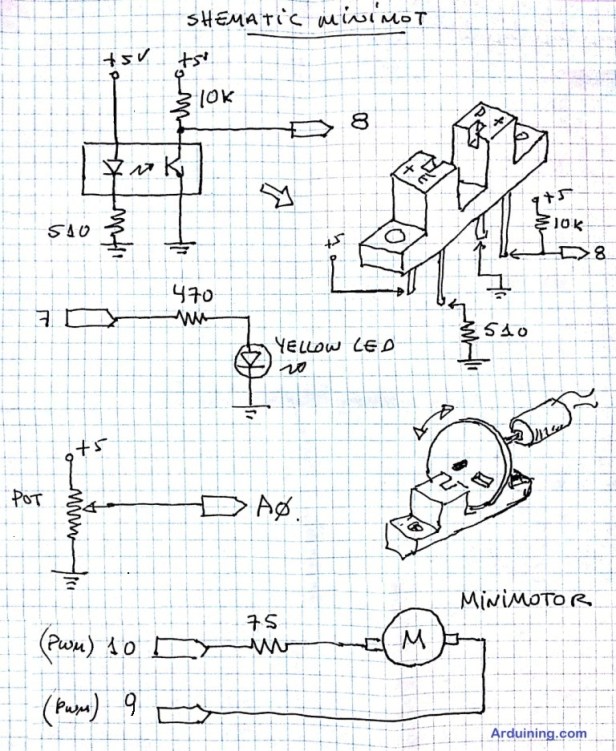 SHEMATIC MINIMOT
+5V
+5V
10K
8
510
D +
+ E
+5
10K
8
+5
510
7
470
YELLOW LED
+5
POT
AØ.
MINIMOTOR
(PWM) 10
75
M
(PWM) 9
Arduining.com